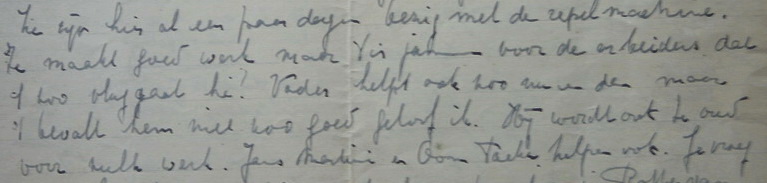 Ze zijn hier al een paar dagen bezig met de repelmachine.
Ze maakt goed werk maar 't is jammer voor de arbeiders dat
't zoo vlug gaat hé? Vader helpt ook zoo nu en dan maar
't bevalt hem niet zoo goed geloof ik. Hij wordt ook te oud
voor zulk werk. Jans Martini en Oom helpen ook. Je vroeg